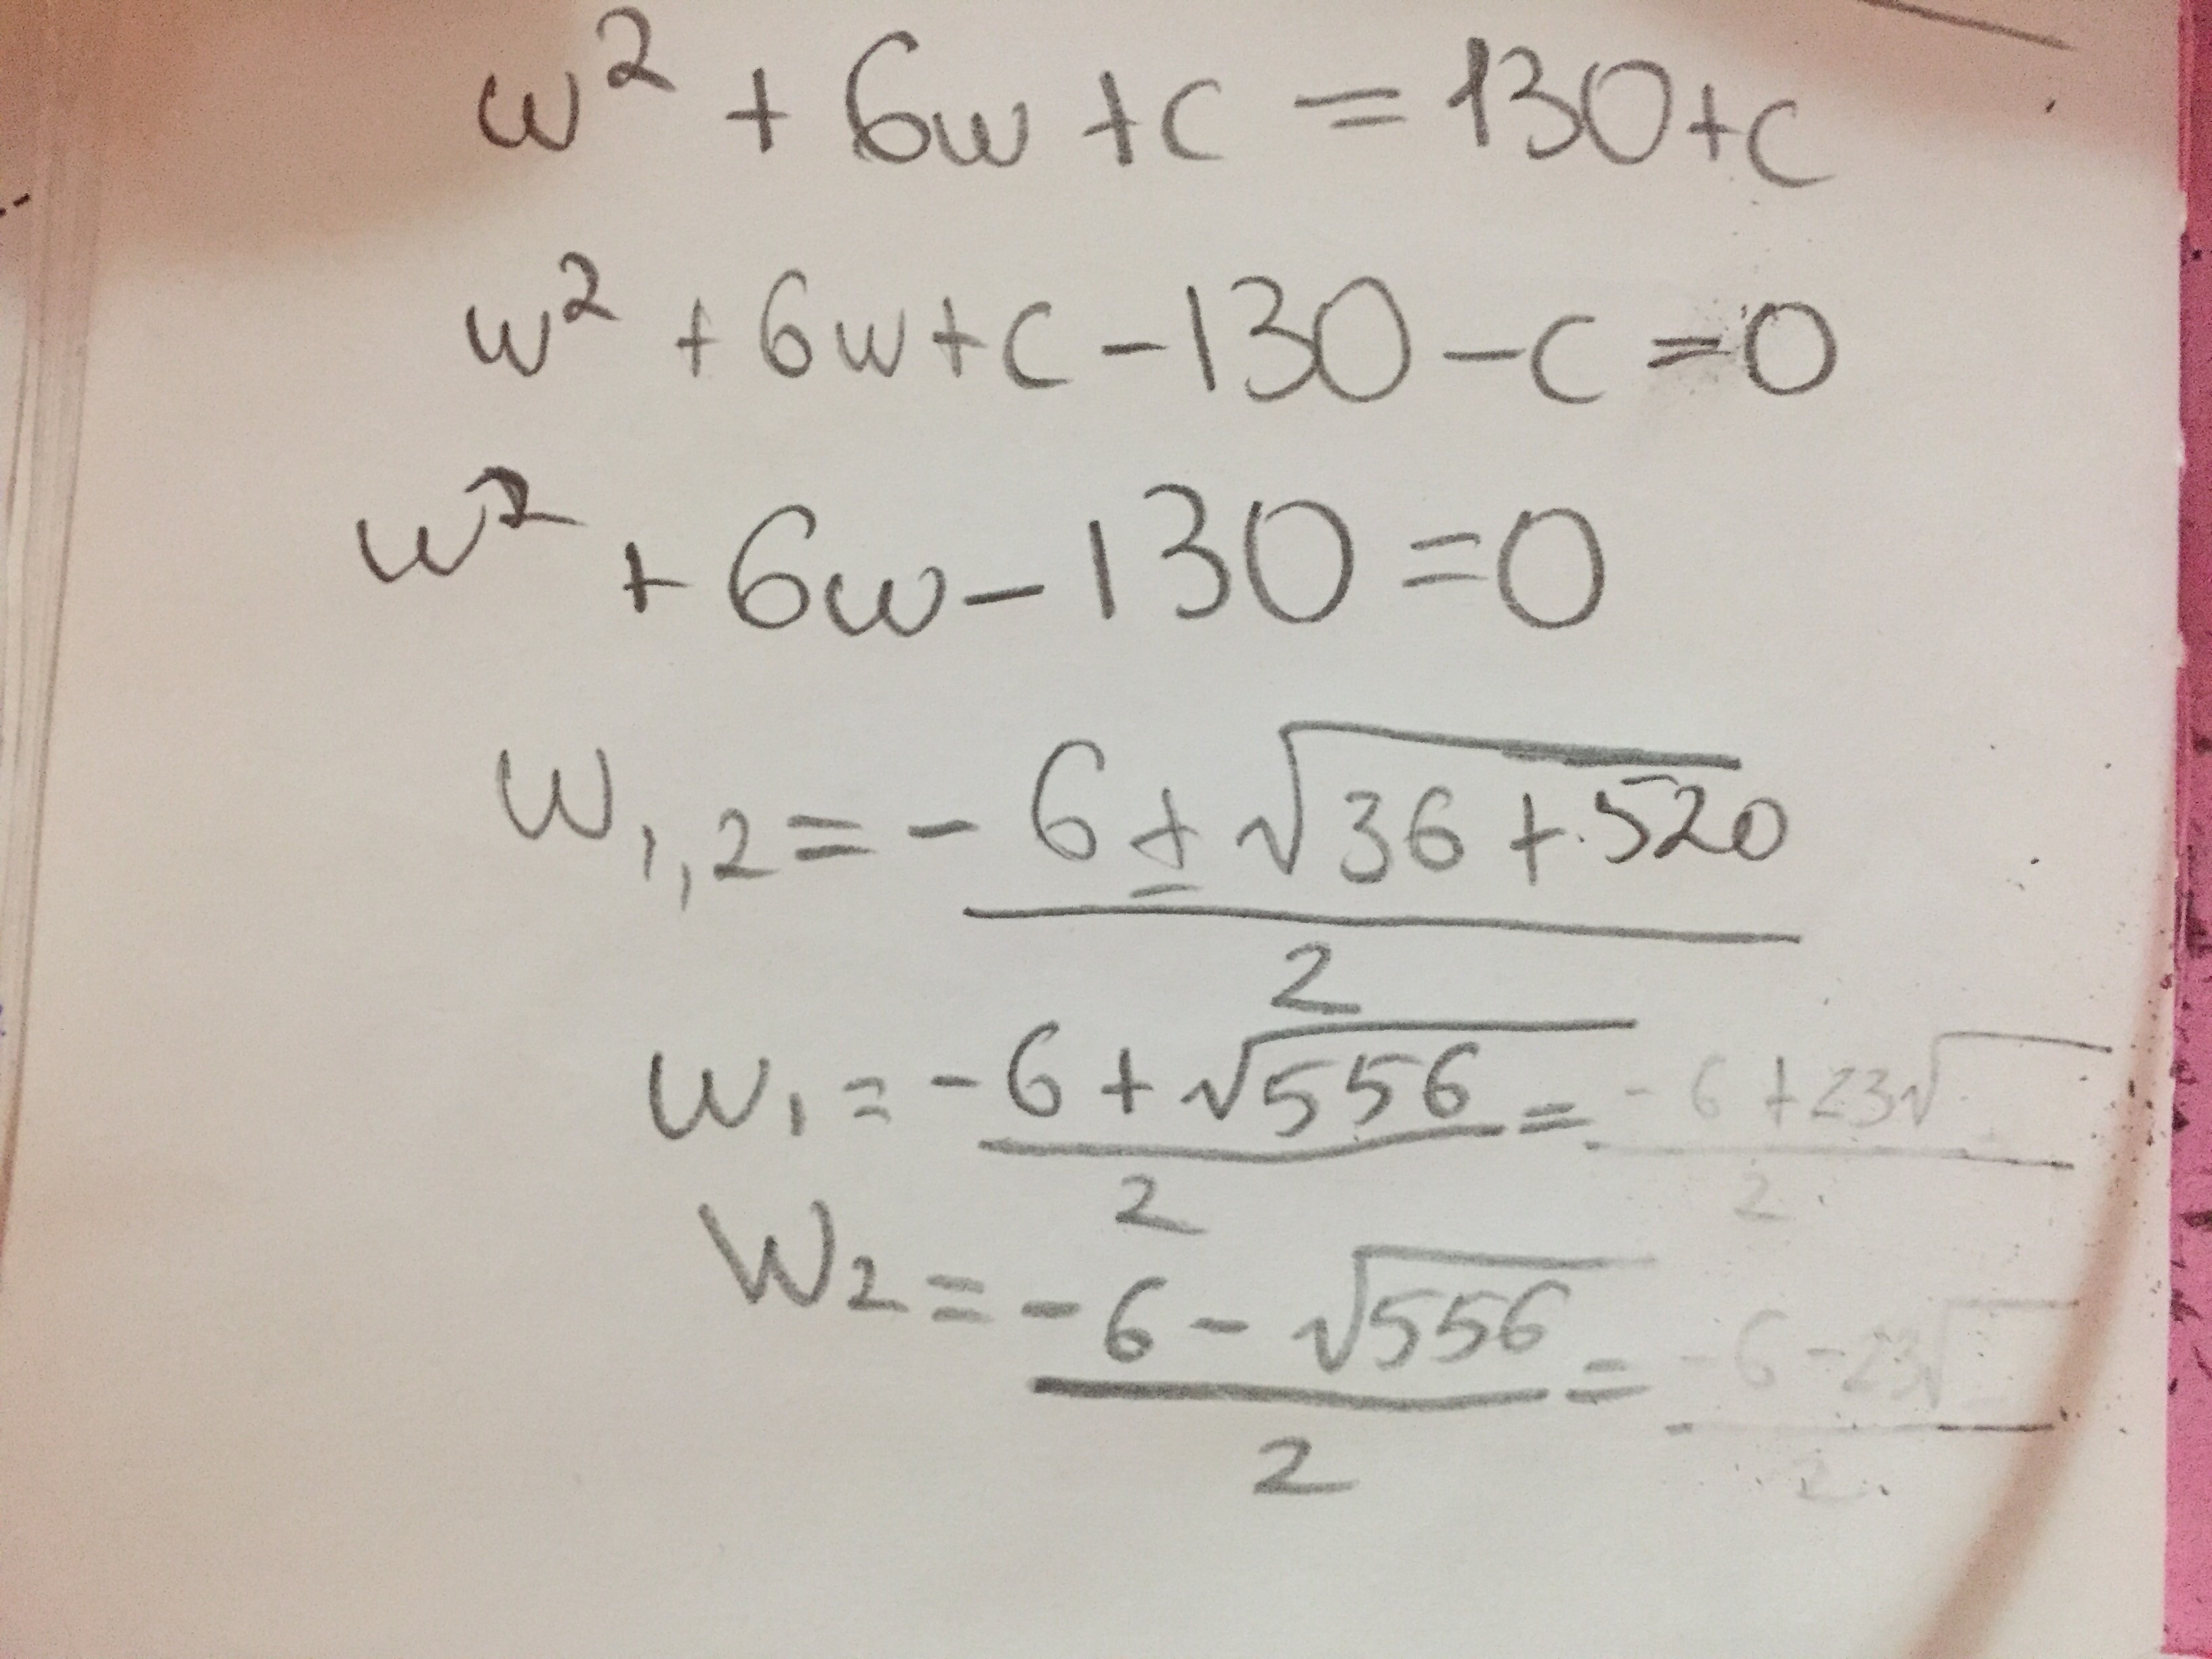 w² + 6w + c = 130 + c
w² + 6w + c - 130 - c = 0
w² + 6w - 130 = 0
w₁,₂ = (-6 ± √(36 + 520)) / 2
w₁ = (-6 + √556) / 2 = (-6 + 23√ ) / 2
w₂ = (-6 - √556) / 2 = (-6 - 23√ ) / 2